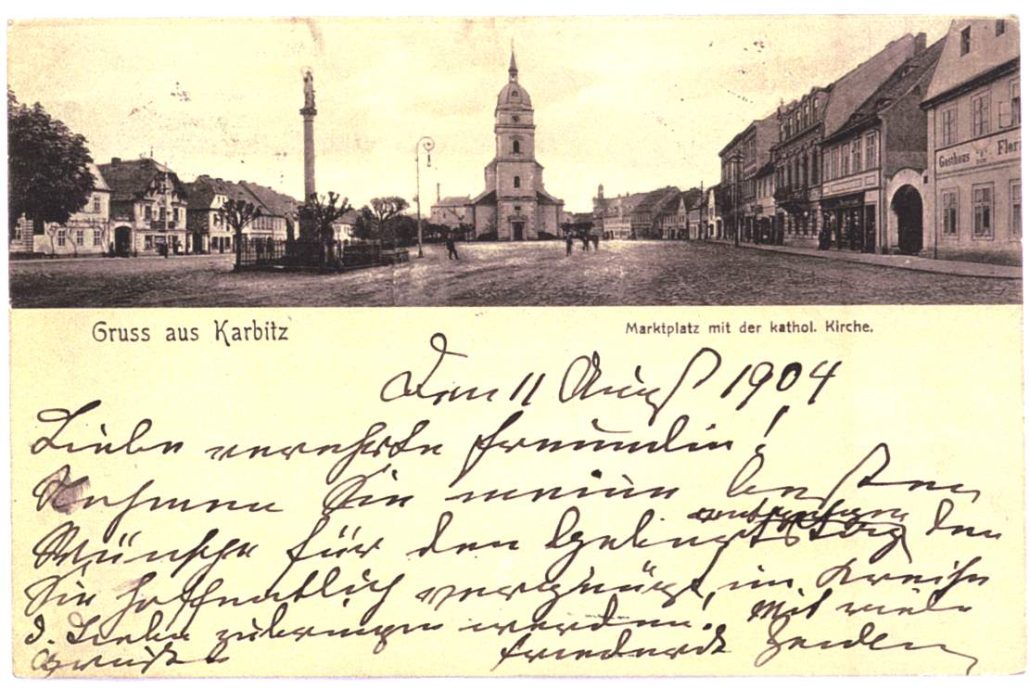 Gasthaus Flori
Gruss aus Karbitz
Marktplatz mit der kathol. Kirche.
Den 11 Aug 1904
Liebe verehrte Freundin!
Nehmen Sie meine besten
Wünsche für den den
Sie hoffentlich vergnügt, im Kreise
d. Lieben zubringen werden. Mit viele
Grüße